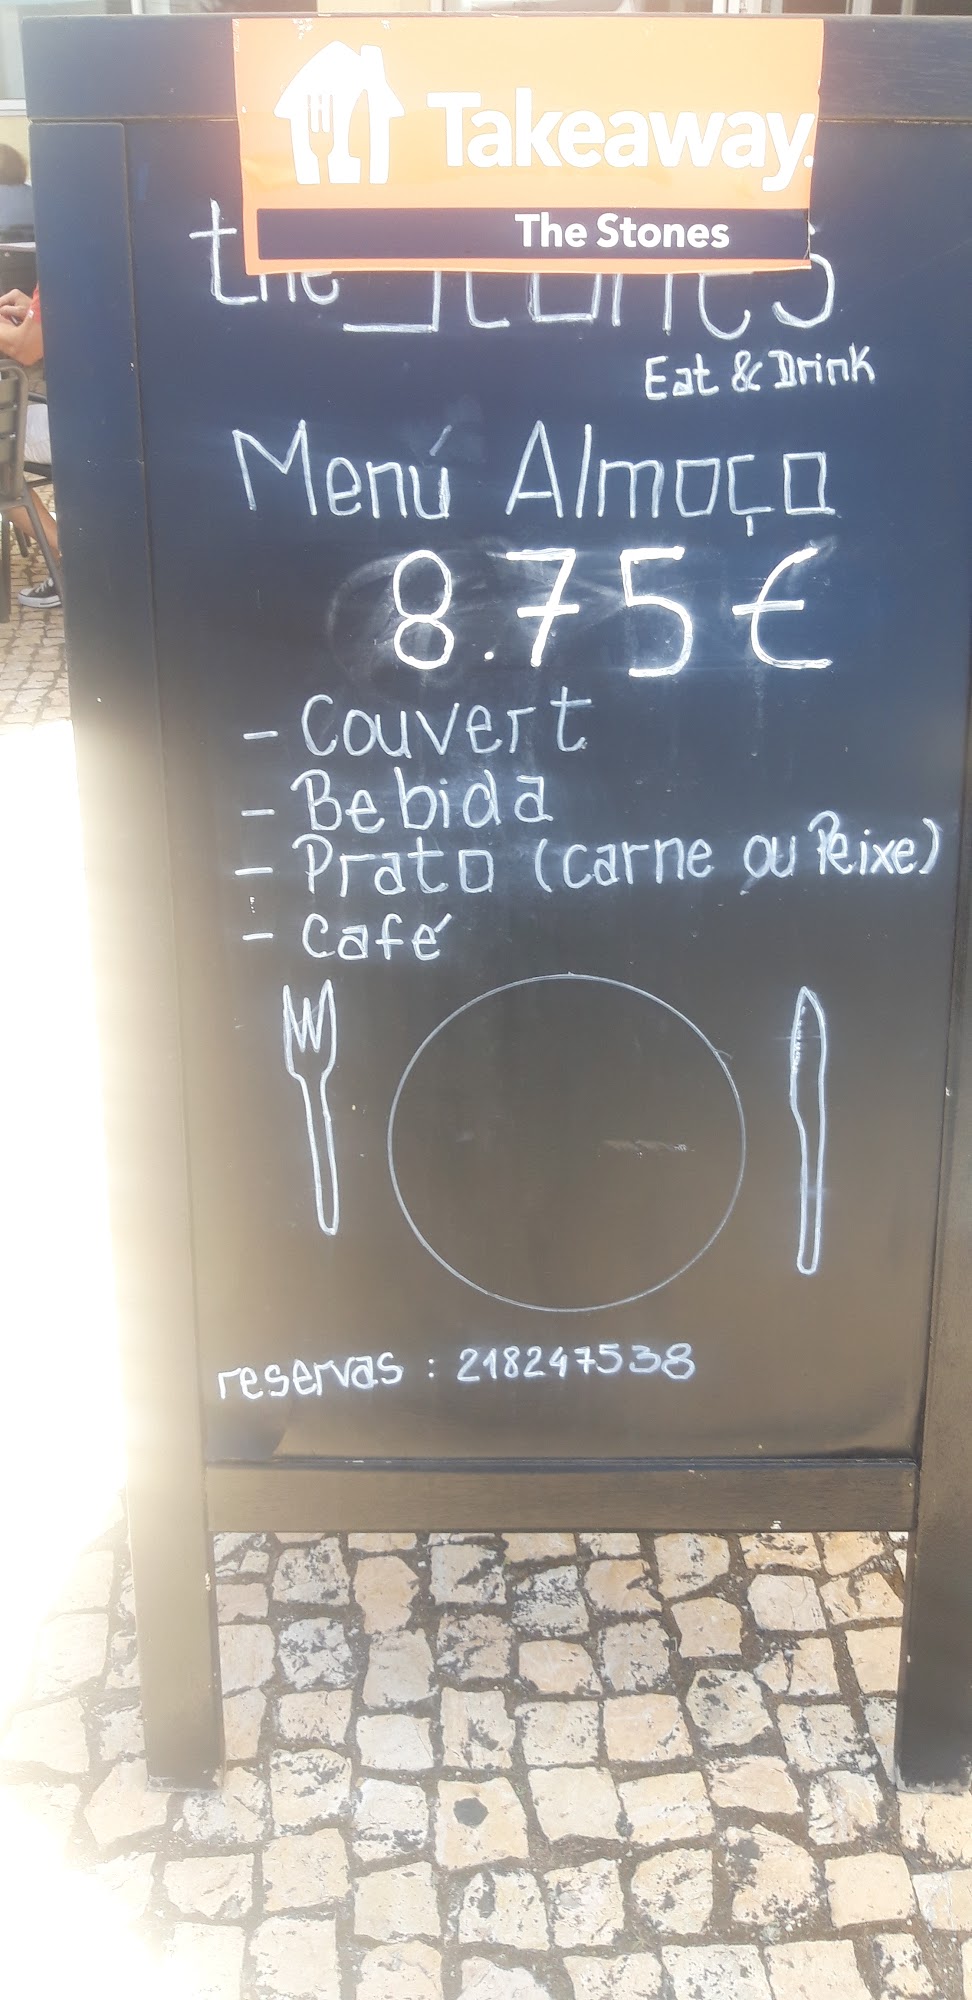 Takeaway.
The Stones
the Stones
Eat & Drink
Menú Almoço
8.75€
- Couvert
- Bebida
- Prato (carne ou Peixe)
- Café
reservas : 218247538